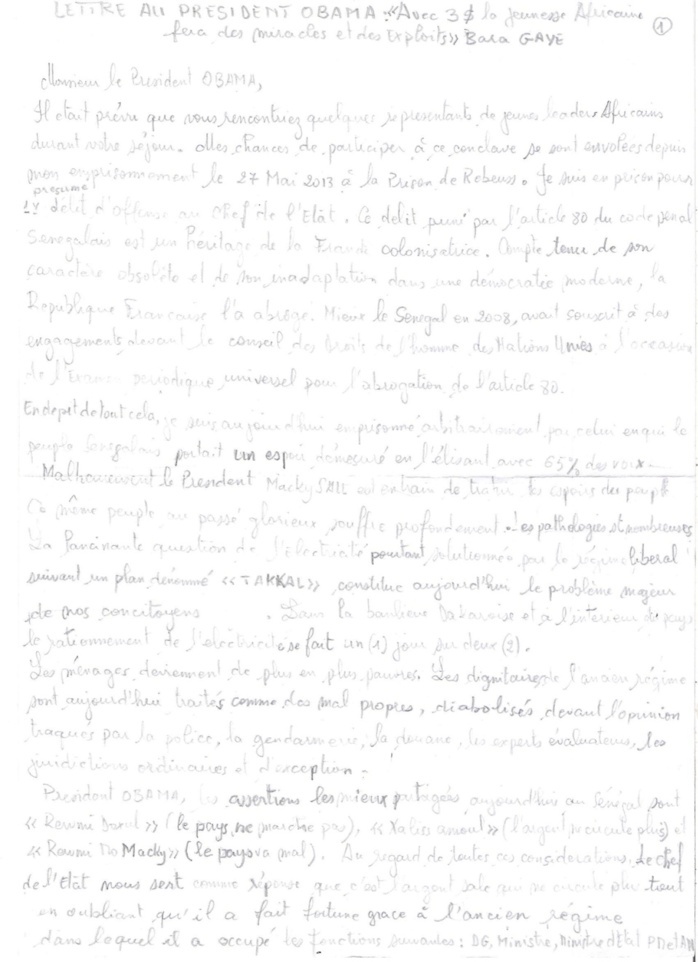 LETTRE AU PRESIDENT OBAMA : «Avec 3$ la jeunesse Africaine
fera des miracles et des Exploits» Bara GAYE
1
Monsieur le President OBAMA,
Il etait prévu que vous rencontriez quelques representants de jeunes leaders Africains
durant votre séjour. Mes chances de participer à ce conclave se sont envolées depuis
mon emprisonnement le 27 Mai 2013 à la Prison de Rebeuss. Je suis en prison pour
présumé
délit d'offense au Chef de l'Etat. Ce délit puni par l'article 80 du code penal
Senegalais est un héritage de la France colonisatrice. Compte tenu de son
caractère obsolète et de son inadaptation dans une démocratie moderne, la
Republique Francaise l'a abrogé. Mieux le Senegal en 2008, avait souscrit à des
engagements devant le conseil des Droits de l'homme des Nations Unies à l'occasion
de l'Examen periodique universel pour l'abrogation de l'article 80.
En depit de tout cela, je suis aujourd'hui emprisonné arbitrairement par celui en qui le
peuple Senegalais portait un espoir démesuré en l'élisant avec 65% des voix.
Malheureusement le President Macky SALL est entrain de trahir les espoirs du peuple
Ce même peuple au passé glorieux souffre profondement. Les pathologies st nombreuses
La lancinante question de l'Electricité pourtant solutionnée par le régime liberal
suivant un plan dénommé «TAKKAL» constitue aujourd'hui le problème majeur
de nos concitoyens . Dans la banlieue Dakaroise et à l'intérieur du pays
le rationnement de l'electricité se fait un (1) jour sur deux (2).
Les ménages deviennent de plus en plus pauvres. Les dignitaires de l'ancien régime
sont aujourd'hui traités comme des mal propres, diabolisés devant l'opinion
traqués par la police, la gendarmerie, la douane, les experts évaluateurs, les
juridictions ordinaires et d'exception.
President OBAMA, les assertions les mieux partagées aujourd'hui au Sénégal sont
« Rewmi Doxul » (le pays ne marche pas), « Xaliss amoul » (l'argent ne circule plus) et
« Rewmi Macky » (le pays va mal). Au regard de toutes ces considerations, le chef
de l'Etat nous sert comme réponse que c'est l'argent sale qui ne circule plus tout
en oubliant qu'il a fait fortune grace à l'ancien régime
dans lequel il a occupé les fonctions suivantes : DG, Ministre, Ministre d'Etat PM et AN